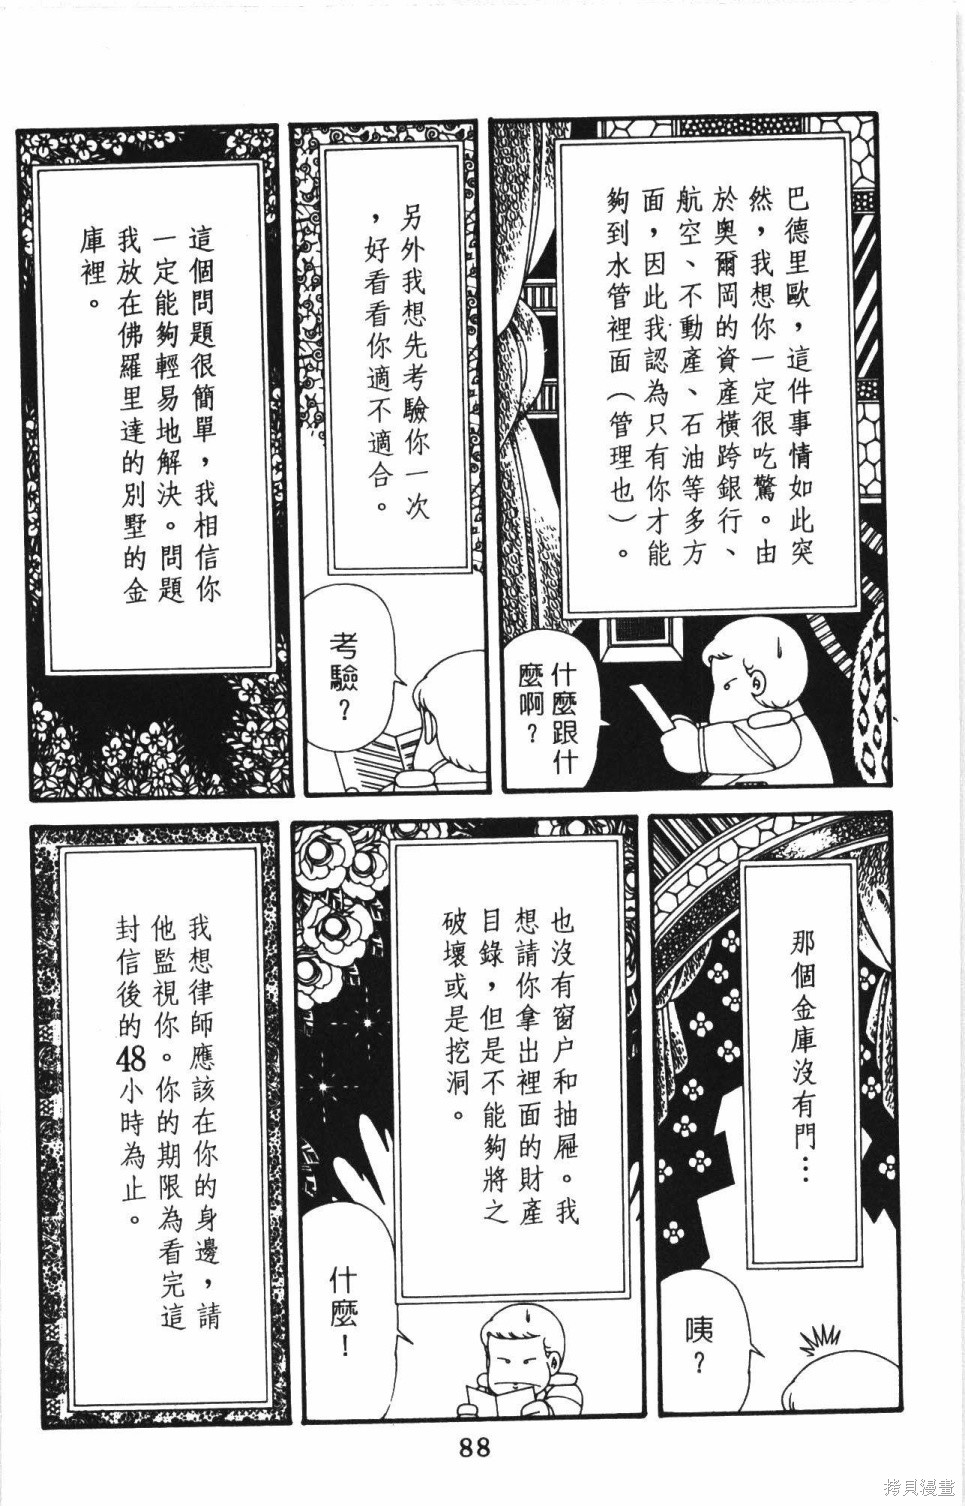 巴德里歐，這件事情如此突
然，我想你一定很吃驚。由
於奧爾岡的資產橫跨銀行、
航空、不動產、石油等多方
面，因此我認為只有你才能
夠到水管裡面（管理也）。
什麼跟什
麼啊？
另外我想先考驗你一次
，好看看你適不適合。
考驗？
這個問題很簡單，我相信你
一定能夠輕易地解決。問題
我放在佛羅里達的別墅的金
庫裡。
那個金庫沒有門…
咦？
也沒有窗戶和抽屜。我
想請你拿出裡面的財產
目錄，但是不能夠將之
破壞或是挖洞。
什麼！
我想律師應該在你的身邊，請
他監視你。你的期限為看完這
封信後的48小時為止。
88
拷貝漫畫